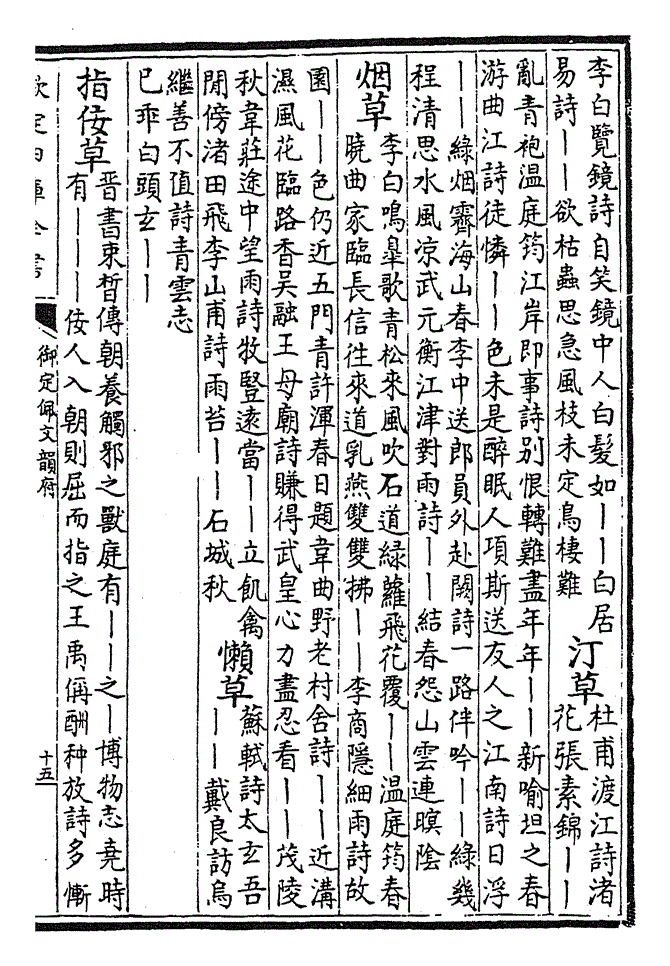 李白覽鏡詩自笑鏡中人白髮如丨丨白居
易詩丨丨欲枯蟲思急風枝未定鳥棲難
汀草
杜甫渡江詩渚
花張素錦丨丨
亂青袍温庭筠江岸即事詩别恨轉難盡年年丨丨新喻坦之春
游曲江詩徒憐丨丨色未是醉眠人項斯送友人之江南詩日浮
丨丨緑烟霽海山春李中送郎員外赴闕詩一路伴吟丨丨緑幾
程清思水風凉武元衡江津對雨詩丨丨結春怨山雲連暝陰
烟草
李白鳴臯歌青松來風吹石道緑蘿飛花覆丨丨温庭筠春
曉曲家臨長信徃來道乳燕雙雙拂丨丨李商隱細雨詩故
園丨丨色仍近五門青許渾春日題韋曲野老村舍詩丨丨近溝
濕風花臨路香吴融王母廟詩賺得武皇心力盡忍看丨丨茂陵
秋韋莊途中望雨詩牧豎遠當丨丨立飢禽
閒傍渚田飛李山甫詩雨苔丨丨石城秋
懶草
蘇軾詩太玄吾
丨丨戴良訪烏
繼善不值詩青雲志
已乖白頭玄丨丨
指佞草
晉書束晳傳朝養觸邪之獸庭有丨丨之丨博物志堯時
有丨丨丨佞人入朝則屈而指之王禹偁酬种放詩多慚
欽定四庫全書
御定佩文韻府
十五